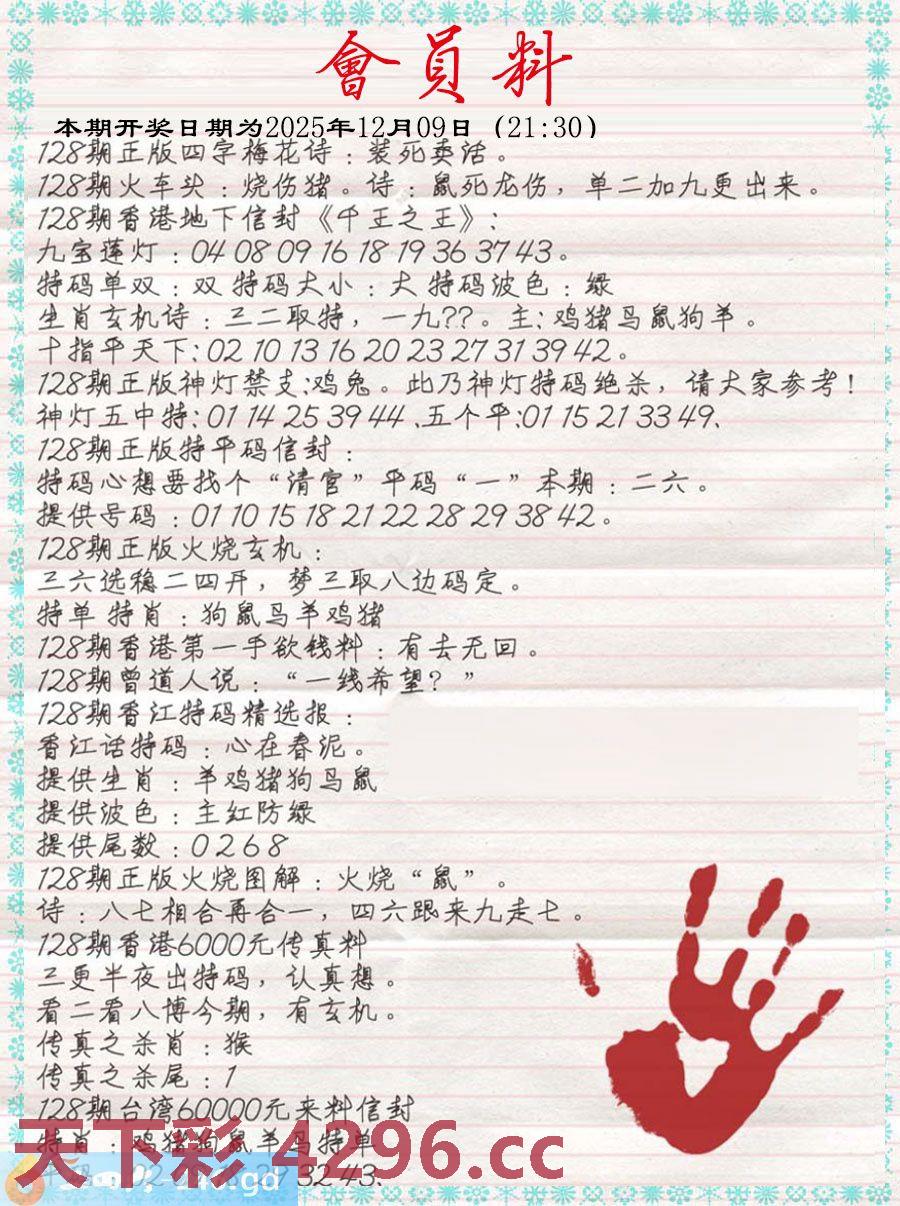 會員料
本期开奖日期为2025年12月09日（21:30）
128期正版四字梅花诗：装死卖活。
128期火车头：烧伤猪。诗：鼠死龙伤，单二加九更出来。
128期香港地下信封《千王之王》：
九宝莲灯：04 08 09 16 18 19 36 37 43。
特码单双：双 特码大小：大 特码波色：绿
生肖玄机诗：三二取特，一九??。主：鸡猪马鼠狗羊。
十指平天下：02 10 13 16 20 23 27 31 39 42。
128期正版神灯禁支：鸡兔。此乃神灯特码绝杀，请大家参考！
神灯五中特：01 14 25 39 44、五个平：01 15 21 33 49、
128期正版特平码信封：
特码心想要找个“清官”平码“一”本期：二六。
提供号码：01 10 15 18 21 22 28 29 38 42。
128期正版火烧玄机：
三六选稳二四开，梦三取八边码定。
特单 特肖：狗鼠马羊鸡猪
128期香港第一手欲钱料：有去无回。
128期曾道人说：“一线希望？”
128期香江特码精选报：
香江话特码：心在春泥。
提供生肖：羊鸡猪狗马鼠
提供波色：主红防绿
提供尾数：0 2 6 8
128期正版火烧图解：火烧“鼠”。
诗：八七相合再合一，四六跟来九走七。
128期香港6000元传真料
三更半夜出特码，认真想。
看二看八博今期，有玄机。
传真之杀肖：猴
传真之杀尾：1
128期台湾60000元来料信封
特肖：鸡猪狗鼠羊马特单
天下彩.4296.cc
32 43、